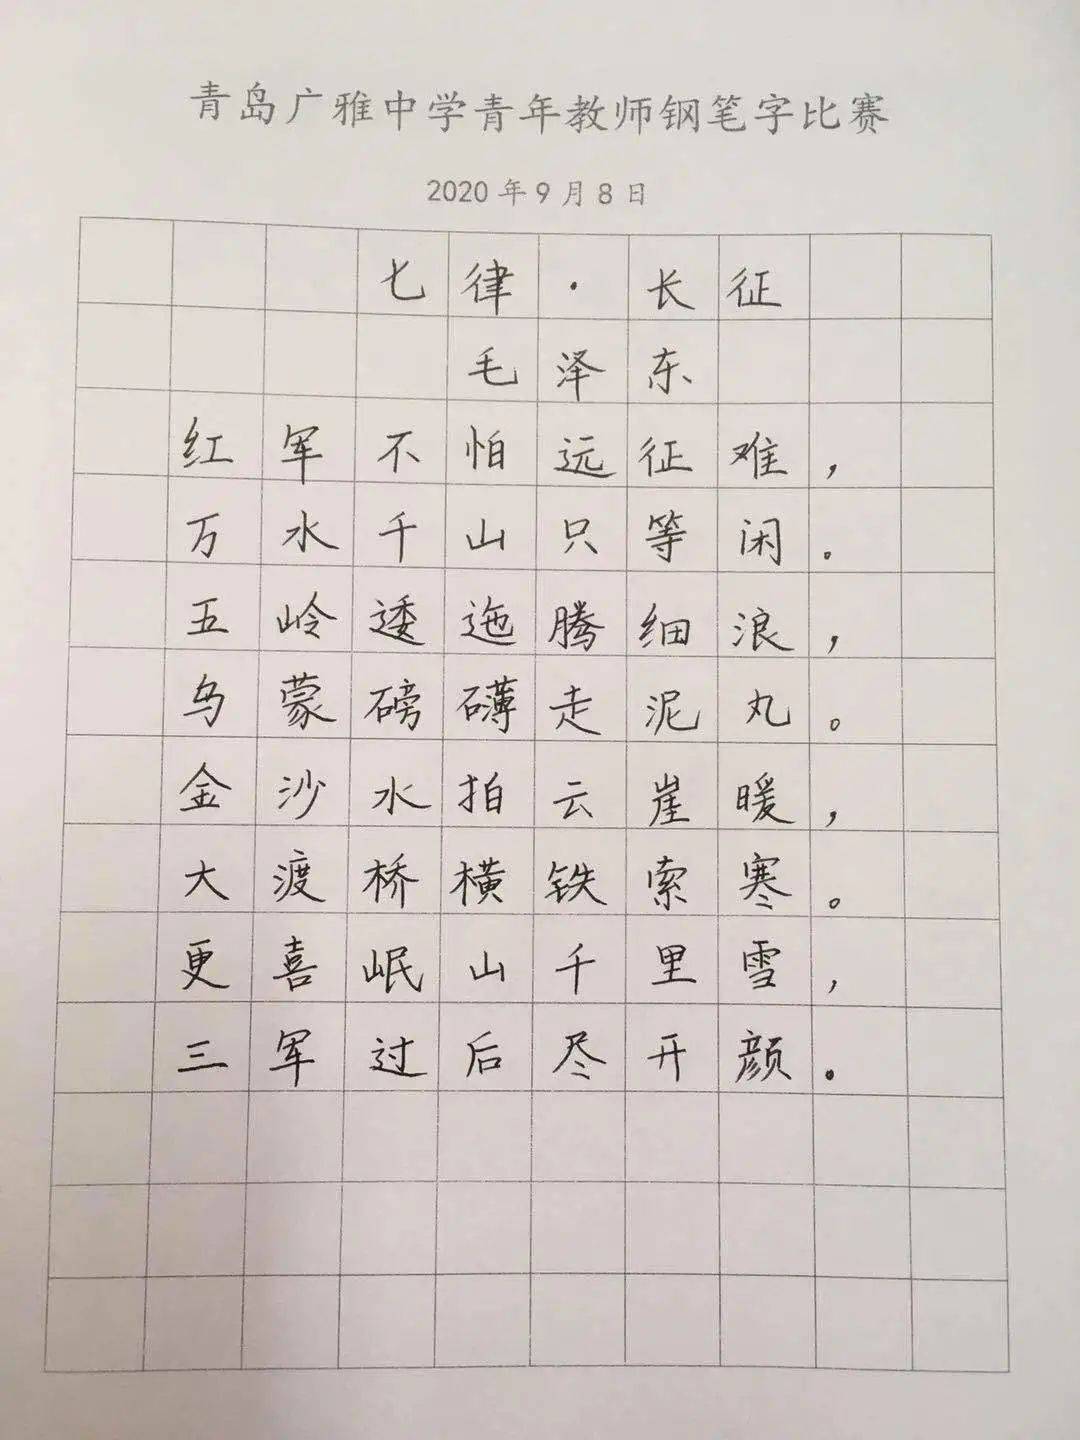 青岛广雅中学青年教师钢笔字比赛
2020年9月8日
七律·长征
毛泽东
红军不怕远征难，
万水千山只等闲。
五岭逶迤腾细浪，
乌蒙磅礴走泥丸。
金沙水拍云崖暖，
大渡桥横铁索寒。
更喜岷山千里雪，
三军过后尽开颜。